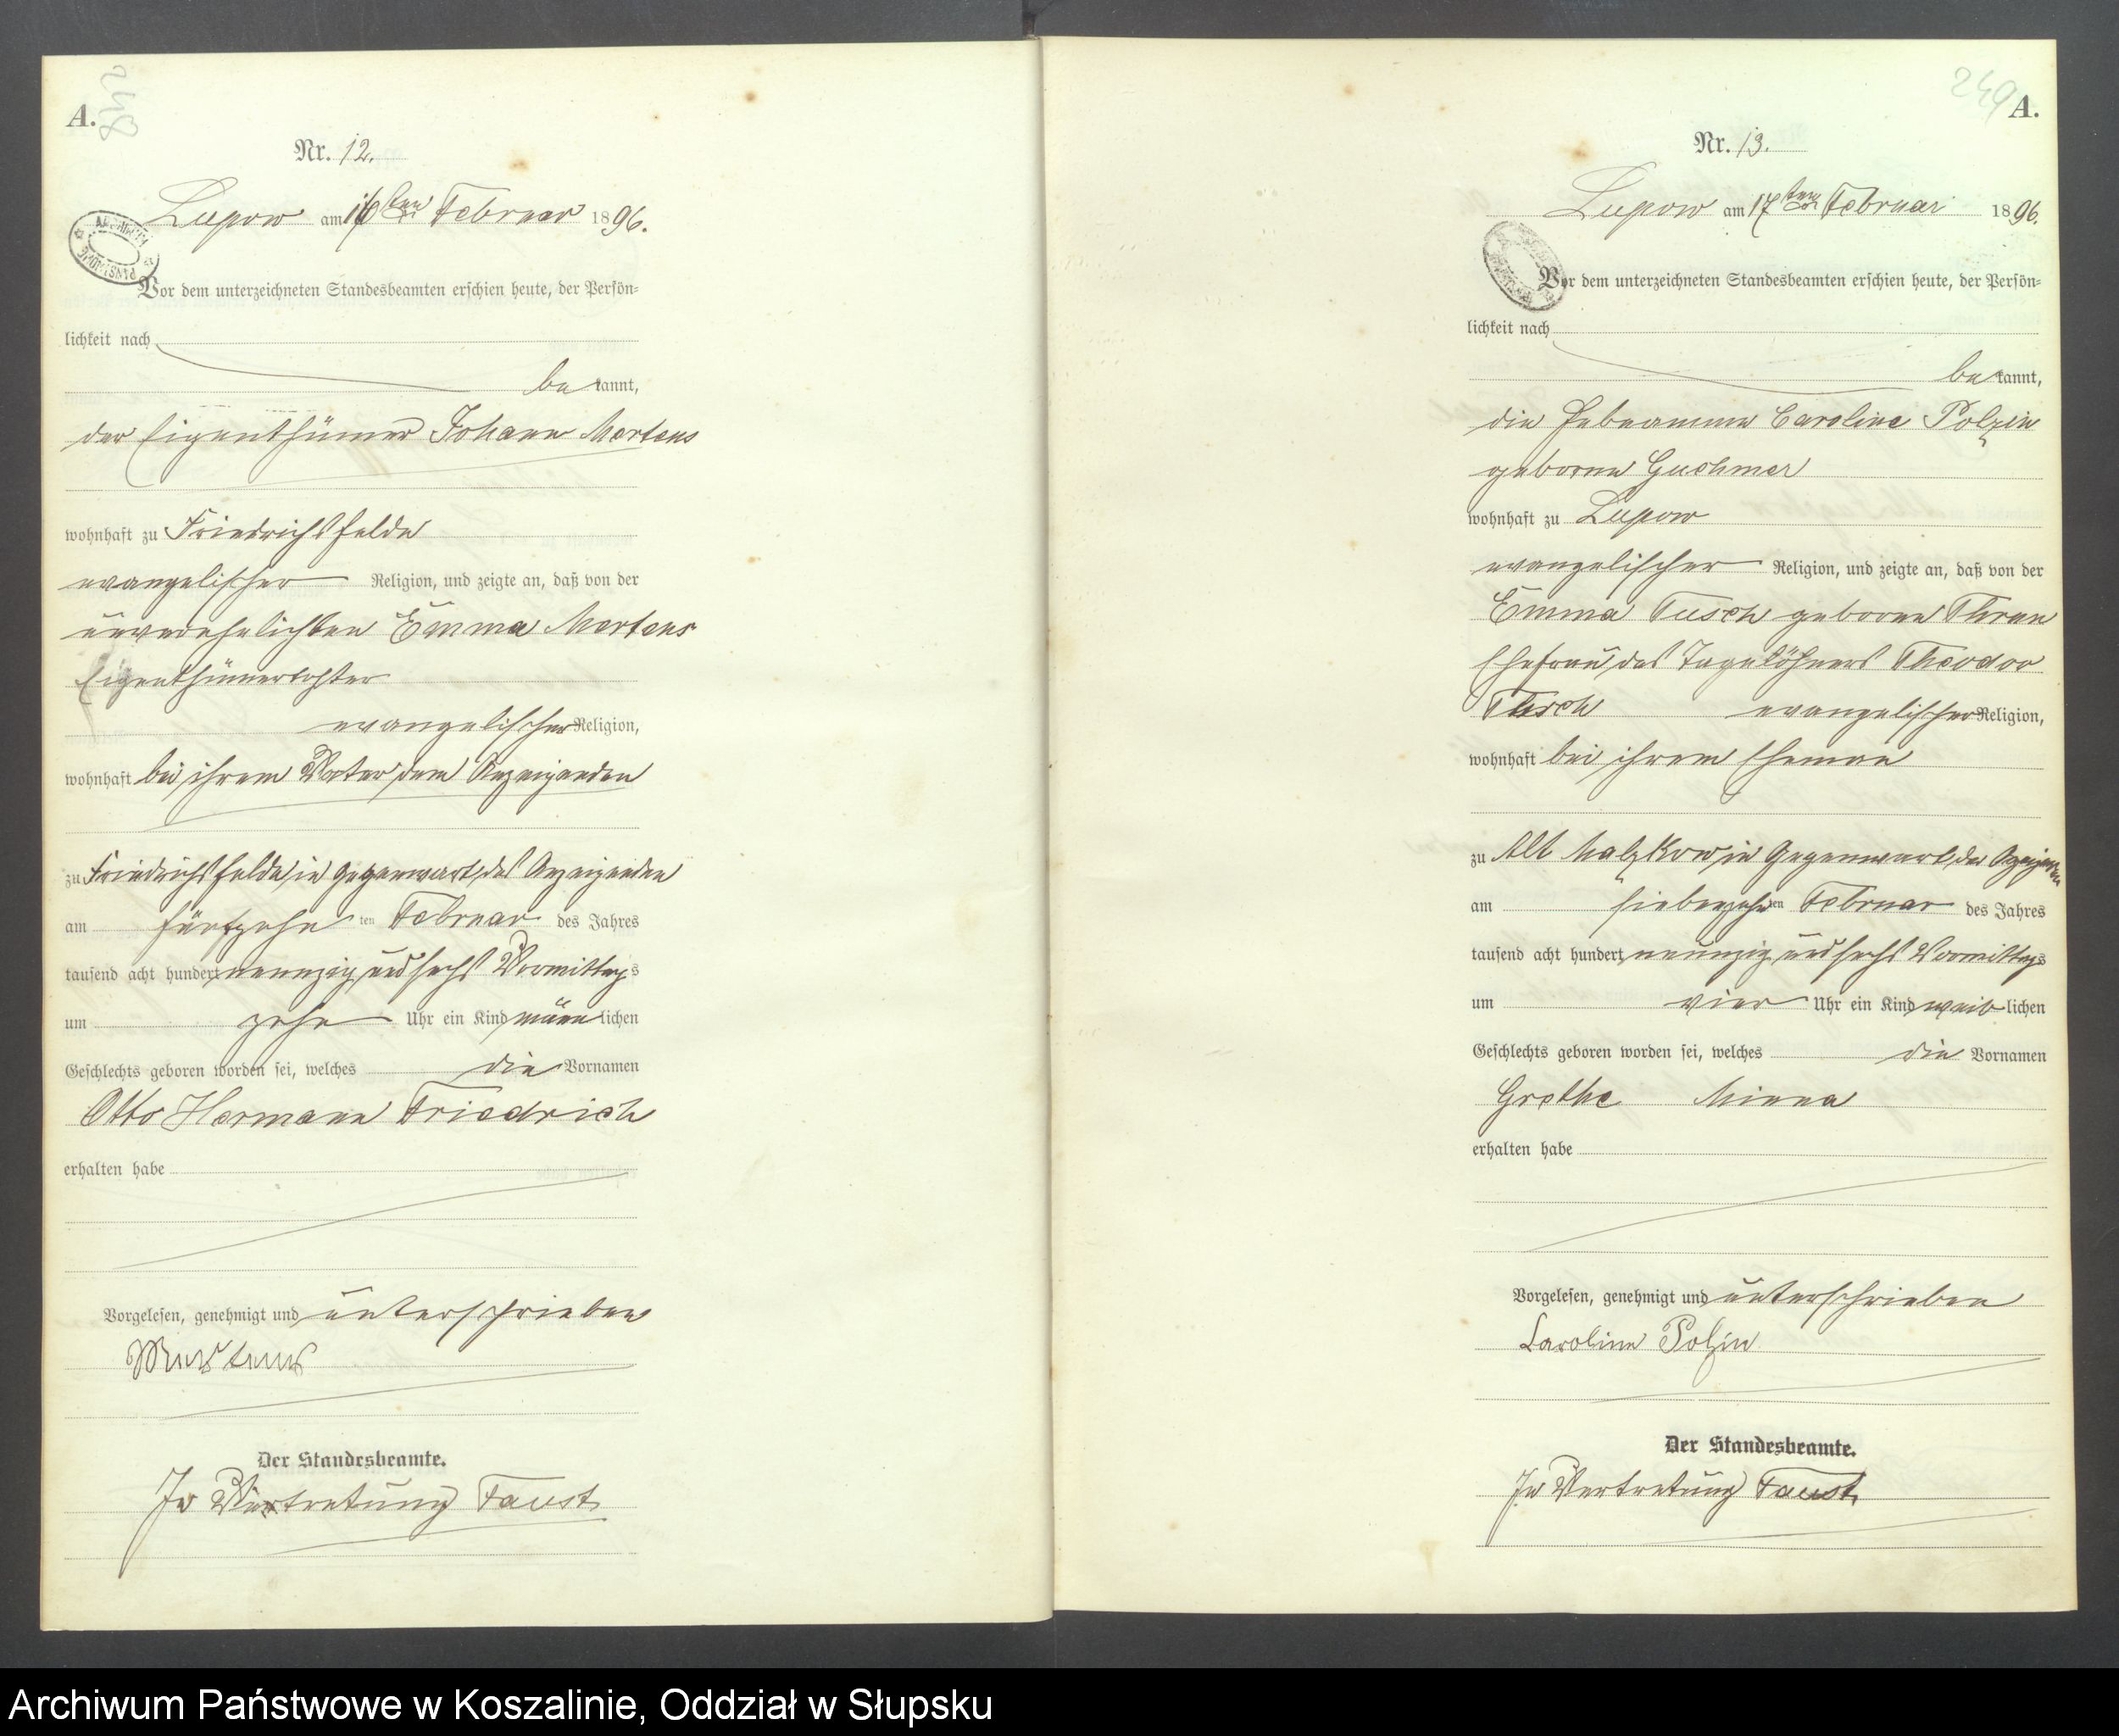 A.
248
Nr. 12.
Lupow am 16ten Februar 1896.
Vor dem unterzeichneten Standesbeamten erschien heute, der Persön-
lichkeit nach
bekannt,
der Eigenthümer Johann Mertens
wohnhaft zu Friedrichsfelde
evangelischer Religion, und zeigte an, daß von der
unverehelichten Emma Mertens
Eigenthümertochter
evangelischer Religion,
wohnhaft bei ihrem Vater, dem Anzeigenden
zu Friedrichsfelde, in Gegenwart des Anzeigenden
am fünfzehnten Februar des Jahres
tausend acht hundert neunzig und sechs Vormittags
um zehn Uhr ein Kind männlichen
Geschlechts geboren worden sei, welches die Vornamen
Otto Hermann Friedrich
erhalten habe
Vorgelesen, genehmigt und unterschrieben
Mertens
Der Standesbeamte.
In Vertretung Faust
249
A.
Nr. 13.
Lupow am 17ten Februar 1896.
Vor dem unterzeichneten Standesbeamten erschien heute, der Persön-
lichkeit nach
bekannt,
die Hebeamme Caroline Polzin
geborne Guehmer
wohnhaft zu Lupow
evangelischer Religion, und zeigte an, daß von der
Emma Tusch geborne Thran
Ehefrau des Tagelöhners Theodor
Tusch evangelischer Religion,
wohnhaft bei ihrem Eheman
zu Alt Malzkow, in Gegenwart der Anzeigenden
am siebenzehnten Februar des Jahres
tausend acht hundert neunzig und sechs Vormittags
um vier Uhr ein Kind weiblichen
Geschlechts geboren worden sei, welches die Vornamen
Grethe Minna
erhalten habe
Vorgelesen, genehmigt und unterschrieben
Caroline Polzin
Der Standesbeamte.
In Vertretung Faust
Archiwum Państwowe w Koszalinie, Oddział w Słupsku